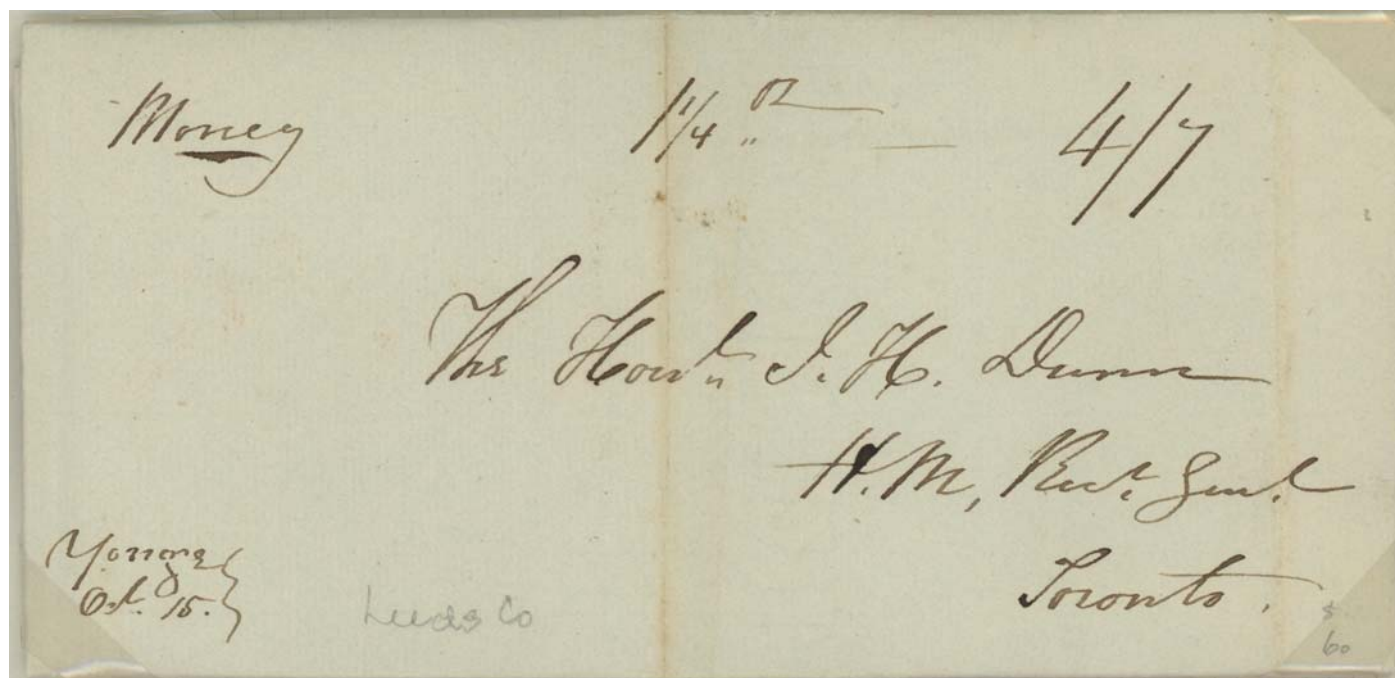 Money 1 1/4 oz 4/7
The Honl. J. H. Dunn
H. M, Rect. Genl.
Toronto.
Yonge
Oct. 15.
Leeds Co
$
60